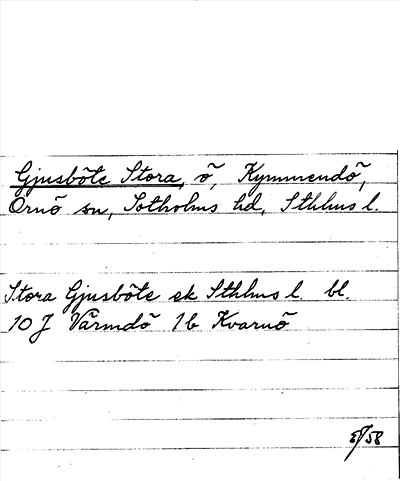 Gjusböte Stora, ö, Kymmendö,
Ornö sn, Sotholms hd, Sthlms l.
Stora Gjusböte ek Sthlms l. bl.
10 J Värmdö 1b Kvarnö
58